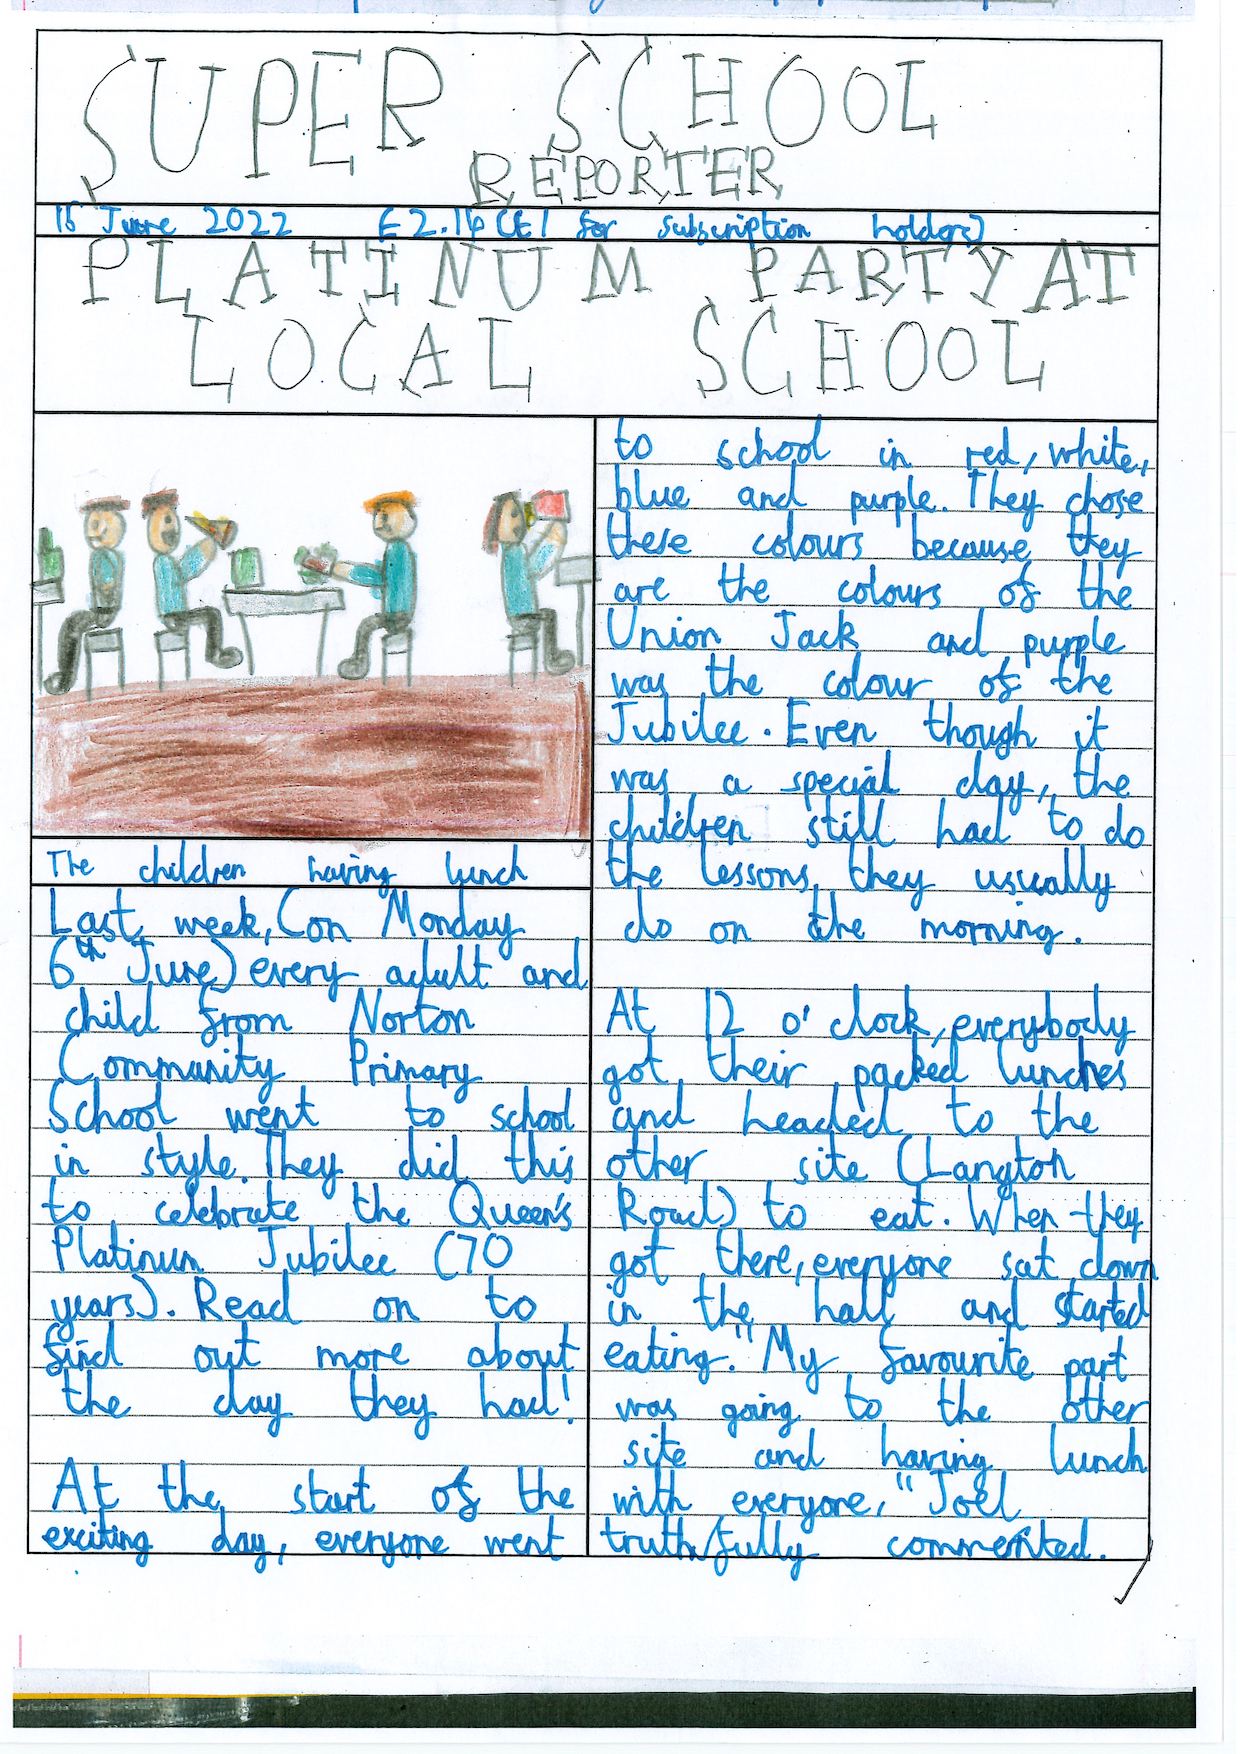 SUPER SCHOOL
REPORTER
15 June 2022 £2.14 (£1 for subscription holders)
PLATINUM PARTY AT
LOCAL SCHOOL
The children having lunch
Last week, (on Monday
6th June) every adult and
child from Norton
Community Primary
School went to school
in style. They did this
to celebrate the Queen's
Platinum Jubilee (70
years). Read on to
find out more about
the day they had!
At the start of the
exciting day, everyone went
to school in red, white,
blue and purple. They chose
these colours because they
are the colours of the
Union Jack and purple
was the colour of the
Jubilee. Even though it
was a special day, the
children still had to do
the lessons, they usually
do on the morning.
At 12 o'clock, everybody
got their packed lunches
and headed to the
other site (Langton
Road) to eat. When they
got there, everyone sat down
in the hall and started
eating. "My favourite part
was going to the other
site and having lunch
with everyone," Joel
truthfully commented.